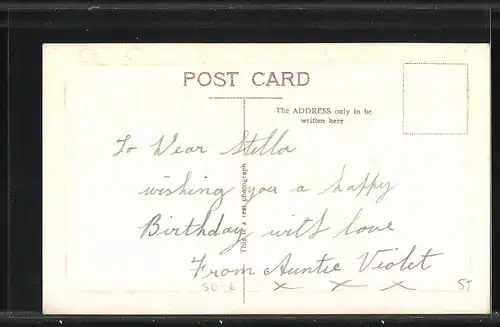 POST CARD
The ADDRESS only to be
written here
This is a real photograph
To Dear Stella
wishing you a happy
Birthday with love
From Auntie Violet
x x x
50-6